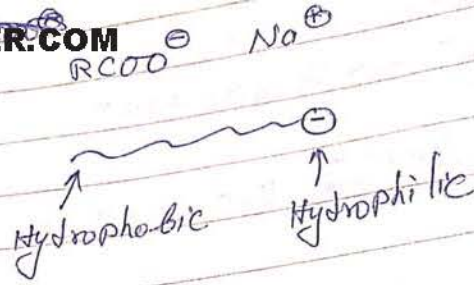 ER.COM
RCOO⊖ Na⊕
⊖
Hydrophobic Hydrophilic